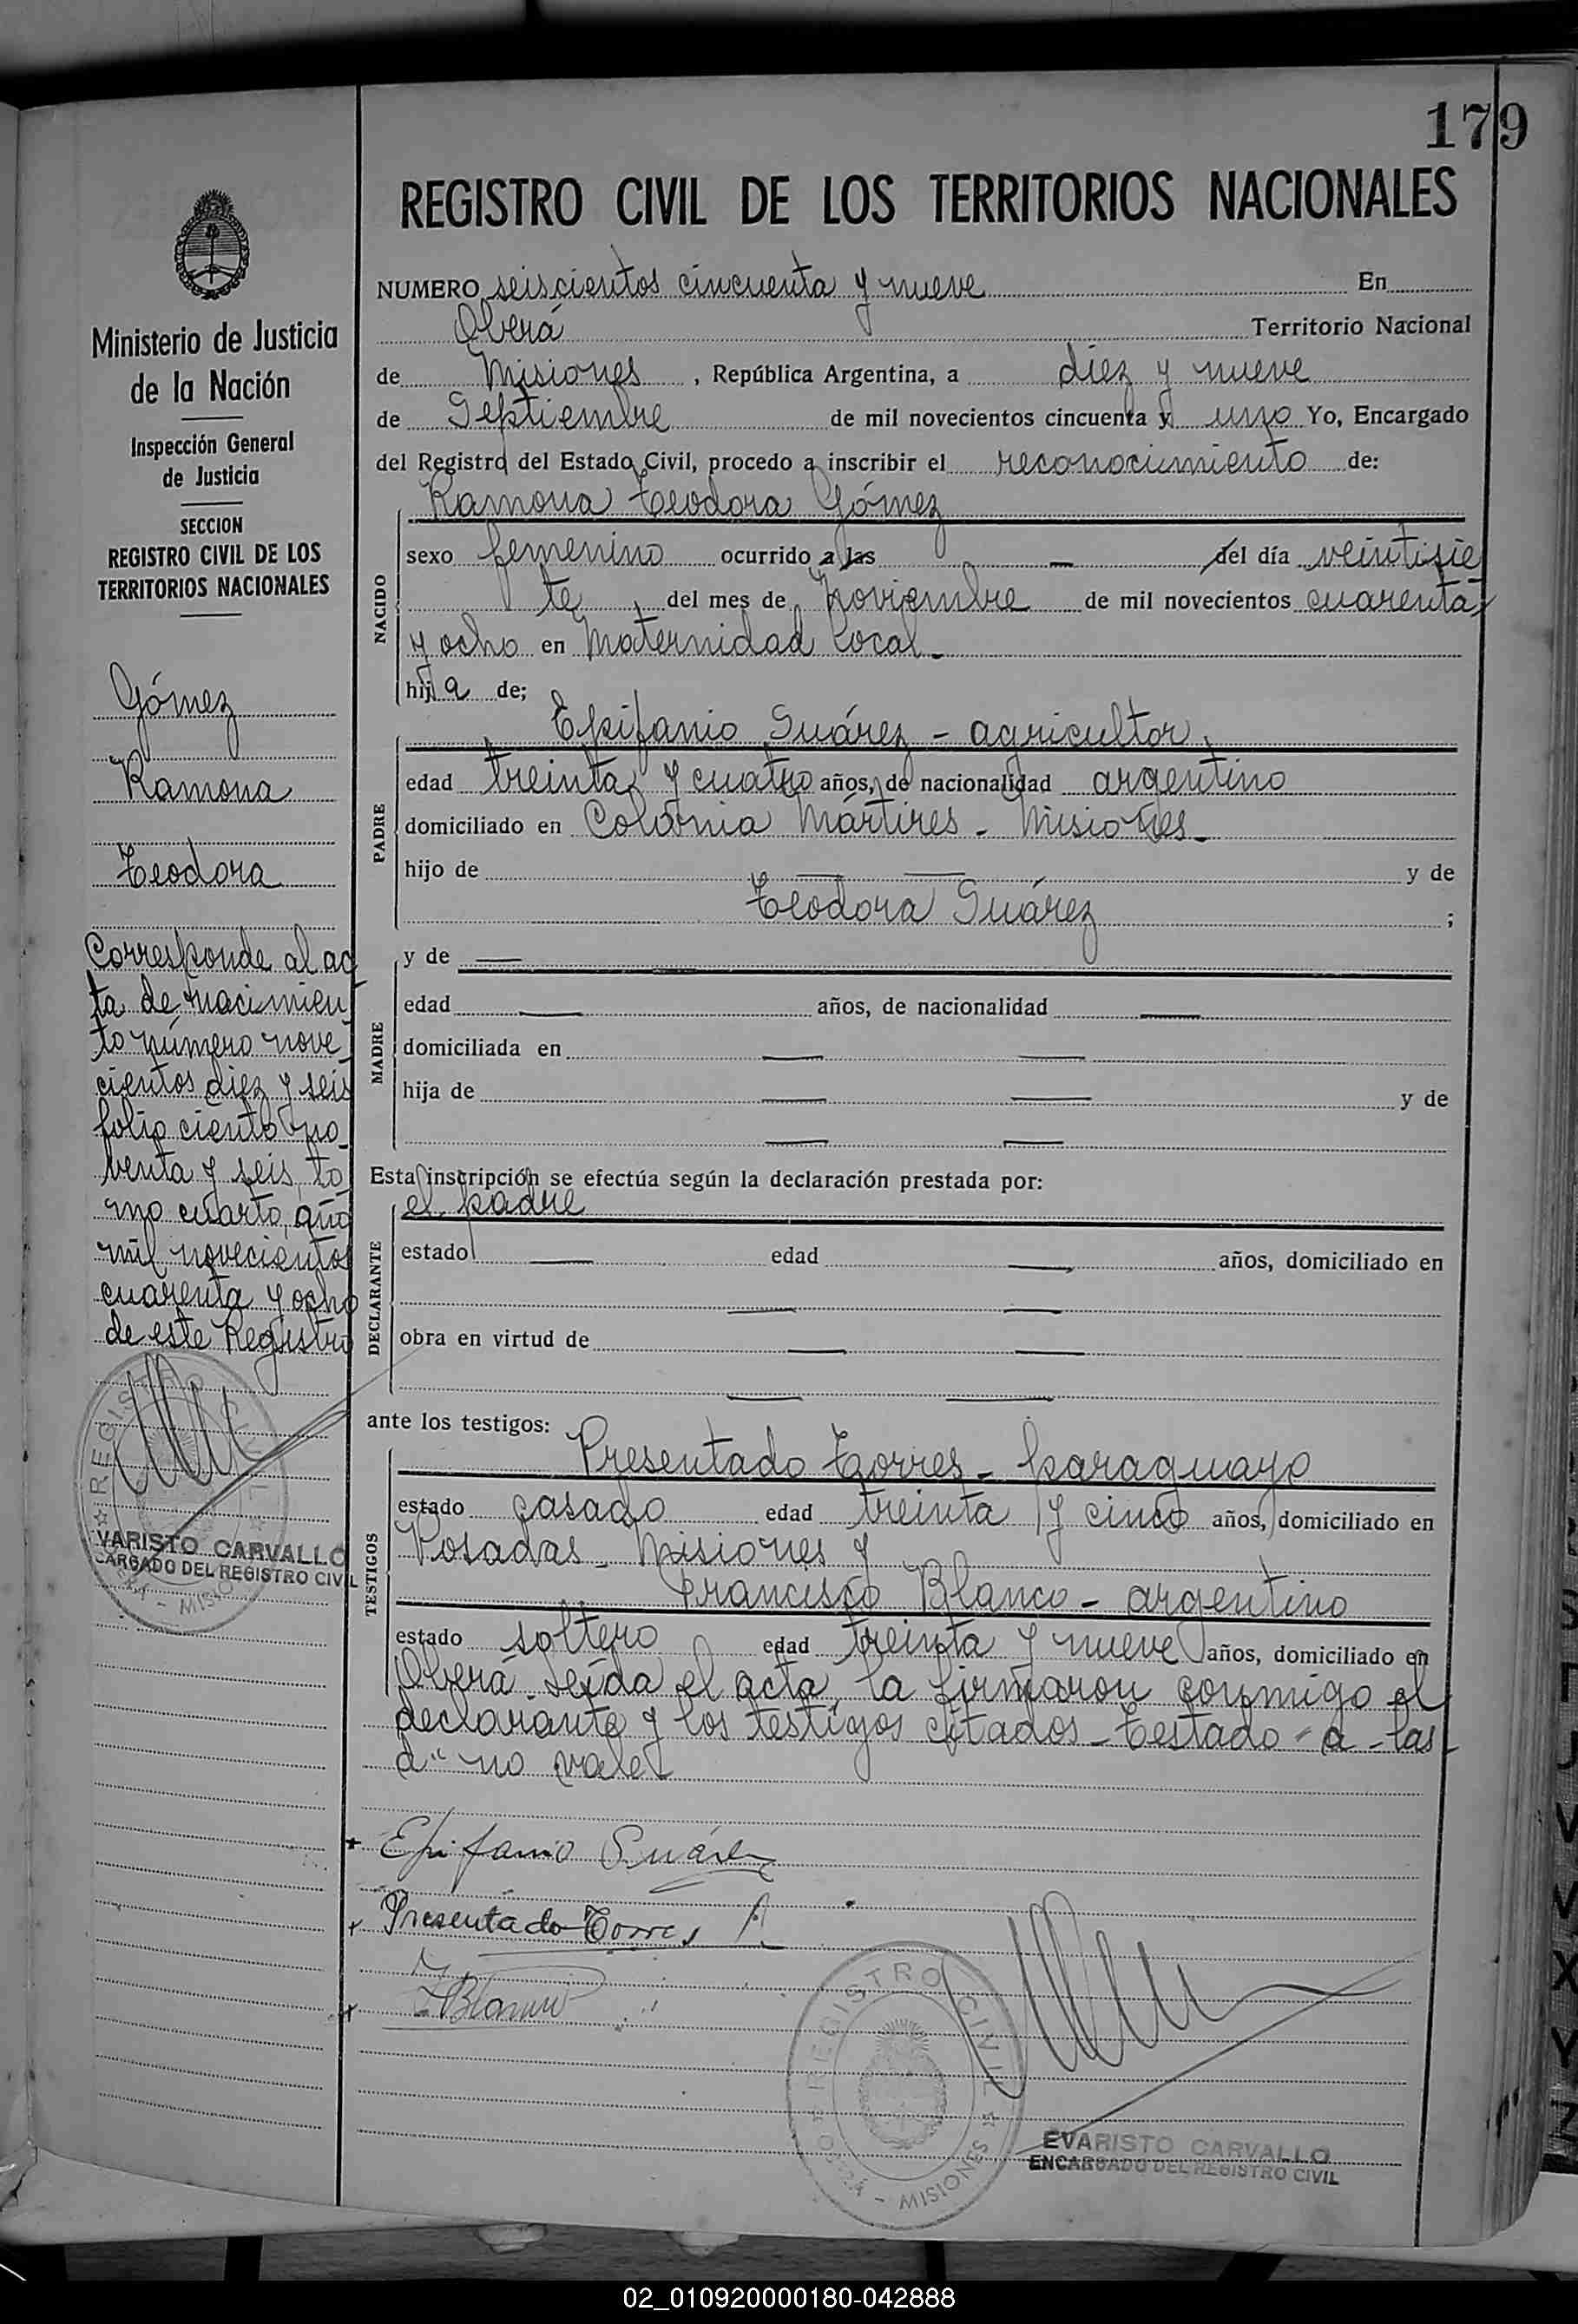 179
REGISTRO CIVIL DE LOS TERRITORIOS NACIONALES
Ministerio de Justicia
de la Nación
Inspección General
de Justicia
SECCION
REGISTRO CIVIL DE LOS
TERRITORIOS NACIONALES
Gómez
Ramona
Teodora
Corresponde al ac
ta de nacimien
to número nove
cientos diez y seis
folio ciento no
venta y seis, to
mo cuarto, año
mil novecientos
cuarenta y ocho
de este Registro
REGISTRO CIVIL
VARISTO CARVALLO
CARGADO DEL REGISTRO CIVIL
MISIO
NUMERO seiscientos cincuenta y nueve En
Oberá Territorio Nacional
de Misiones, República Argentina, a diez y nueve
de Septiembre de mil novecientos cincuenta y uno Yo, Encargado
del Registro del Estado Civil, procedo a inscribir el reconocimiento de:
Ramona Teodora Gómez
NACIDO
sexo femenino ocurrido a las — del día veintisie
te, del mes de Noviembre de mil novecientos cuarenta
y ocho en Maternidad local -
hija de;
Epifanio Suárez - agricultor,
PADRE
edad treinta y cuatro años, de nacionalidad argentino
domiciliado en Colonia Mártires - Misiones -
hijo de — — y de
Teodora Suárez ;
MADRE
y de —
edad — años, de nacionalidad —
domiciliada en — —
hija de — — y de
— —
Esta inscripción se efectúa según la declaración prestada por:
el padre
DECLARANTE
estado — edad — años, domiciliado en
— —
obra en virtud de — —
— —
ante los testigos:
Presentado Torres - paraguayo
TESTIGOS
estado casado edad treinta y cinco años, domiciliado en
Posadas - Misiones y
Francisco Blanco - argentino
estado soltero edad treinta y nueve años, domiciliado en
Oberá. Leída el acta, la firmaron conmigo el
declarante y los testigos citados - Testado - a - las -
d" no vale -
+ Epifanio Suárez
+ Presentado Torres A.
+ F Blanco
REGISTRO CIVIL
OBERÁ - MISIONES
EVARISTO CARVALLO
ENCARGADO DEL REGISTRO CIVIL
02_010920000180-042888